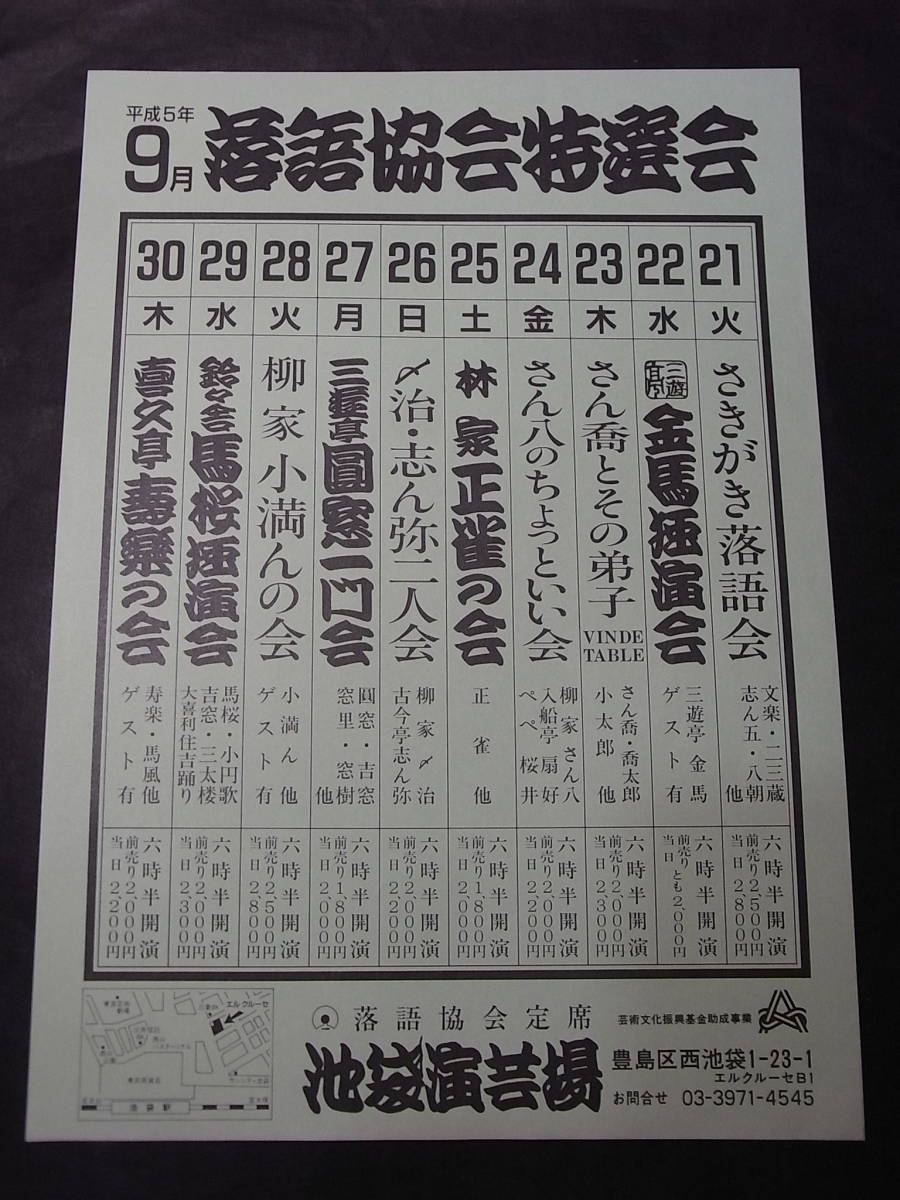 平成5年
9月
落語協会特選会
21
火
さきがき落語会
文楽・二三蔵
志ん五・八朝
他
六時半開演
前売り2,500円
当日2,800円
22
水
三遊亭
金馬独演会
三遊亭金馬
ゲスト有
六時半開演
前売り
当日
とも2,000円
23
木
さん喬とその弟子
VINDE
TABLE
さん喬・喬太郎
小太郎 他
六時半開演
前売り2,000円
当日2,300円
24
金
さん八のちょっといい会
柳家さん八
入船亭扇好
ペペ桜井
六時半開演
前売り2,000円
当日2,200円
25
土
林家正雀の会
正雀 他
六時半開演
前売り1,800円
当日2,000円
26
日
〆治・志ん弥二人会
柳家〆治
古今亭志ん弥
六時半開演
前売り2,000円
当日2,200円
27
月
三遊亭圓窓一門会
圓窓・吉窓
窓里・窓樹
他
六時半開演
前売り1,800円
当日2,000円
28
火
柳家小満んの会
小満ん 他
ゲスト有
六時半開演
前売り2,500円
当日2,800円
29
水
鈴々舎馬桜独演会
馬桜・小円歌
吉窓・三太楼
大喜利住吉踊り
六時半開演
前売り2,000円
当日2,300円
30
木
喜久亭寿楽の会
寿楽・馬風他
ゲスト有
六時半開演
前売り2,000円
当日2,200円
エルクルーセ
池袋駅
落語協会定席
池袋演芸場
芸術文化振興基金助成事業
豊島区西池袋1-23-1
エルクルーセB1
お問合せ 03-3971-4545